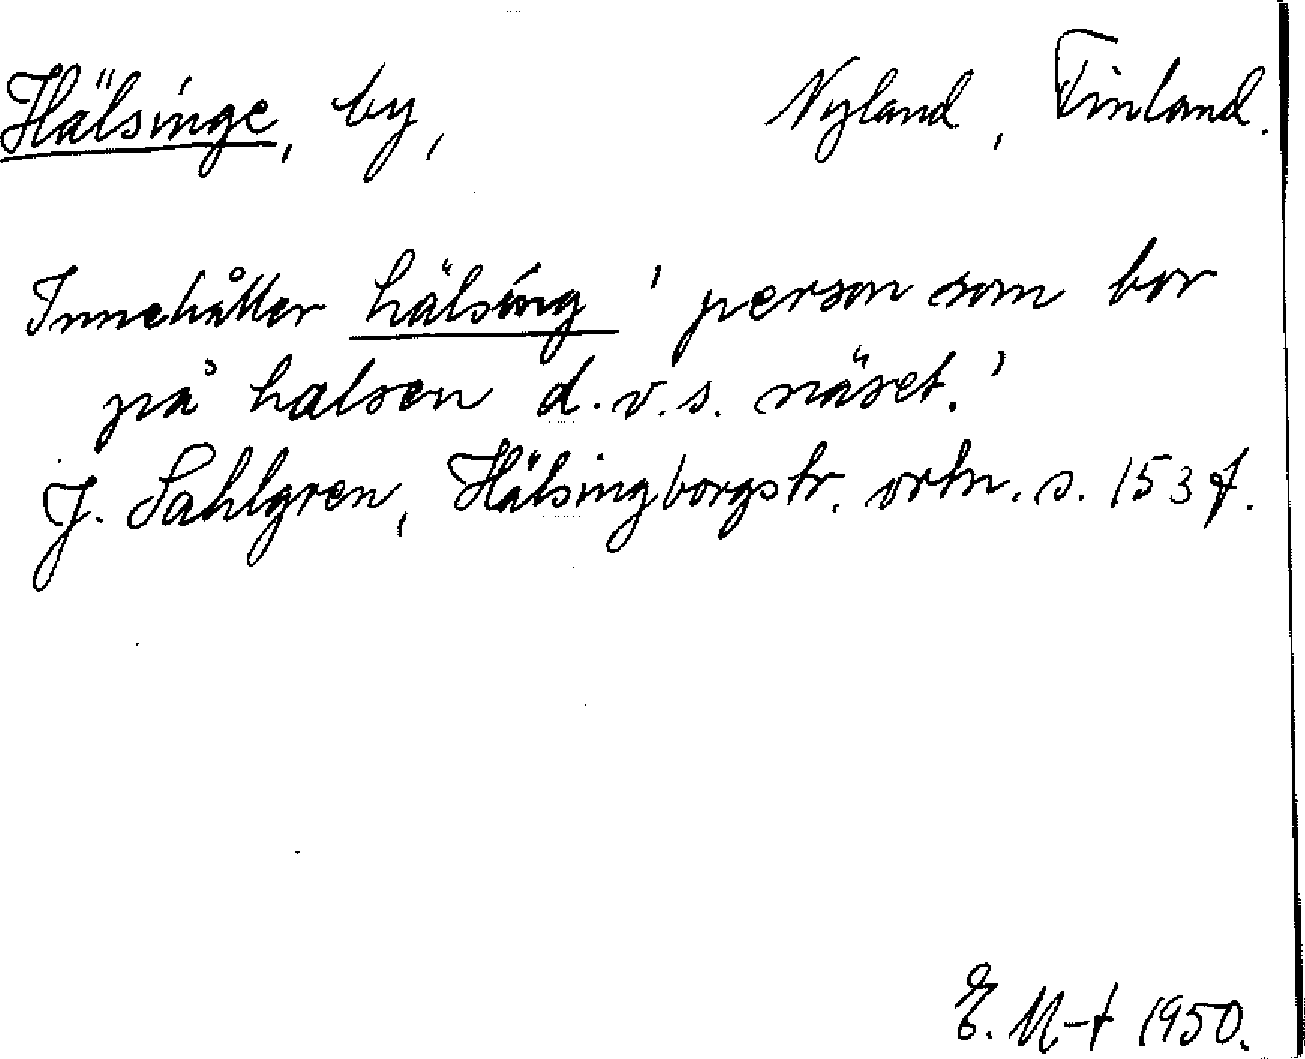 Hälsinge, by, Nyland, Finland.
Innehåller hälsing 'person som bor
på halsen d.v.s. näset.'
J. Sahlgren, Hälsingborgstr. ortn. s. 153 f.
E. M-t 1950.